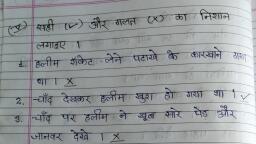 (ख) सही (✓) और गलत (x) का निशान
लगाइए ।
1. हलीम राकेट लेने पटाखे के कारखाने गया
था । X
2. चाँद देखकर हलीम खुश हो गया था । ✓
3. चाँद पर हलीम ने खूब सारे पेड़ और
जानवर देखे । X